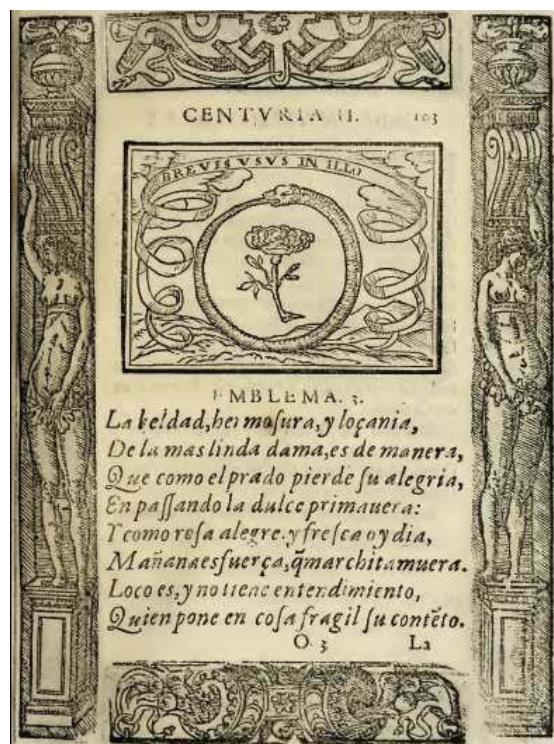 CENTVRIA II. 103
BREVIS VSVS IN ILLO
EMBLEMA. 3.
La beldad, hermoſura, y loçania,
De la mas linda dama, es de manera,
Que como el prado pierde ſu alegria,
En paſſando la dulce primauera:
Y como roſa alegre. y freſca oy dia,
Mañana es fuerça, q̃ marchita muera.
Loco es, y no tiene entendimiento,
Quien pone en coſa fragil ſu contẽto.
O 3 La